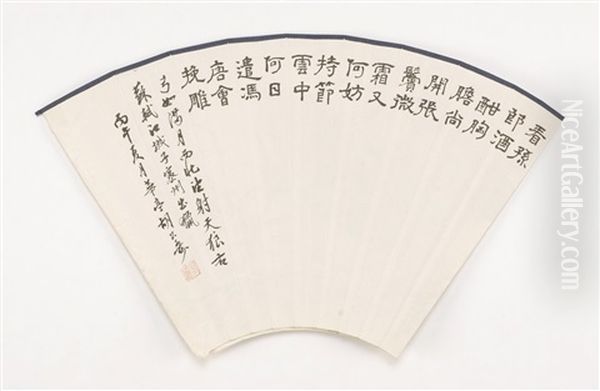 看孫
郎酒
酣胸
膽尚
開張
鬢微
霜又
何妨
持節
雲中
何日
遣馮
唐會
挽雕
弓如滿月西北望射天狼右
蘇軾江城子密州出獵
丙午夏月華亭胡
NiceArtGallery.com